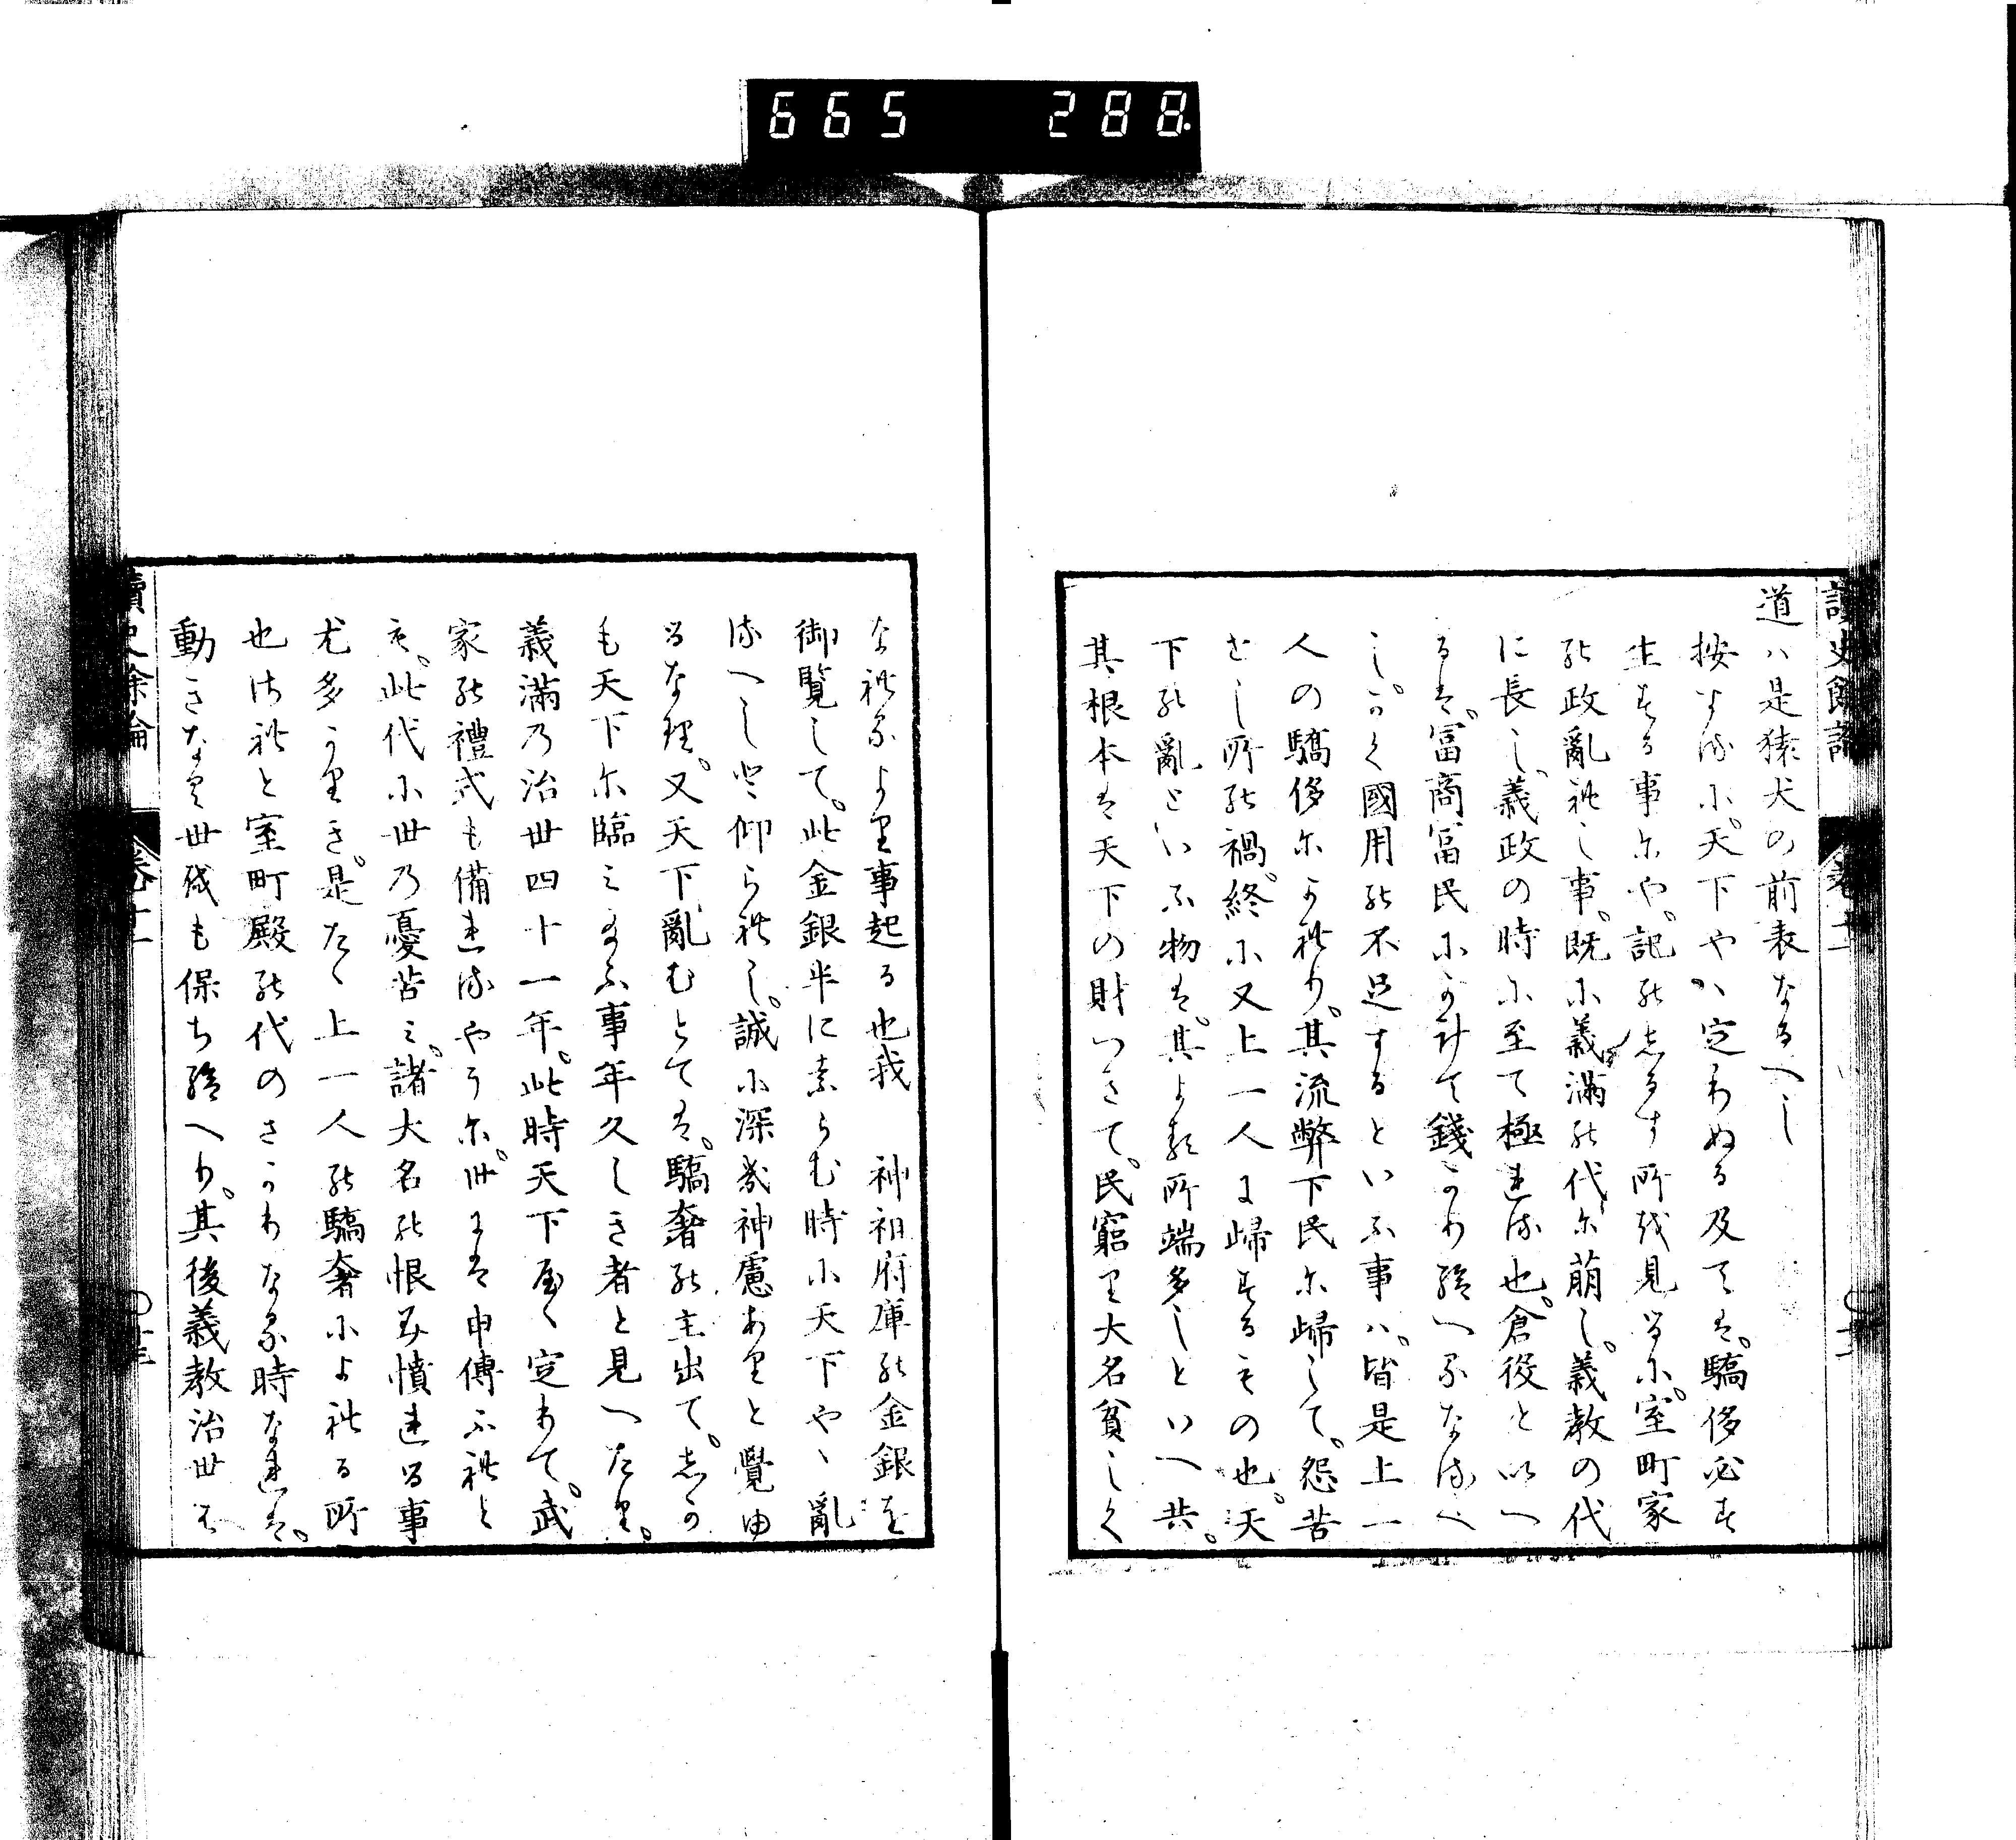 665 288
讀史餘論 卷十一
道ハ是猿犬の前表なるへし
按するに天下やゝ定りぬる及ては驕侈必す
生する事にや記のしるす所を見るに室町家
の政亂れし事既に義滿の代に萠し義教の代
に長し義政の時に至て極れる也倉役と以へ
るは富商富民にかけて錢とり給へるなるへ
しかく國用の不足するといふ事ハ皆是上一
人の驕侈にかれり其流弊下民に歸して怨苦
せし所の禍終に又上一人に歸するもの也天
下の亂といふ物は其よる所端多しといへ共
其根本は天下の財つきて民窮り大名貧しく
なれるより事起る也我 神祖府庫の金銀を
御覽して此金銀半に末らむ時に天下やゝ亂
るへしと仰られし誠に深き神慮ありと覺ゆ
るなり又天下亂むとては驕奢の主出てしか
も天下に臨み給ふ事年久しき者と見へたり
義滿乃治世四十一年此時天下屋く定りて武
家の禮式も備れるやうに世には申傳ふれと
も此代に世乃憂苦み諸大名の恨み憤れる事
尤多かりき是たゝ上一人の驕奢によれる所
也されと室町殿の代のさかりなる時なれは
動きなき世をも保ち給へり其後義教治世は
讀史餘論 卷十一